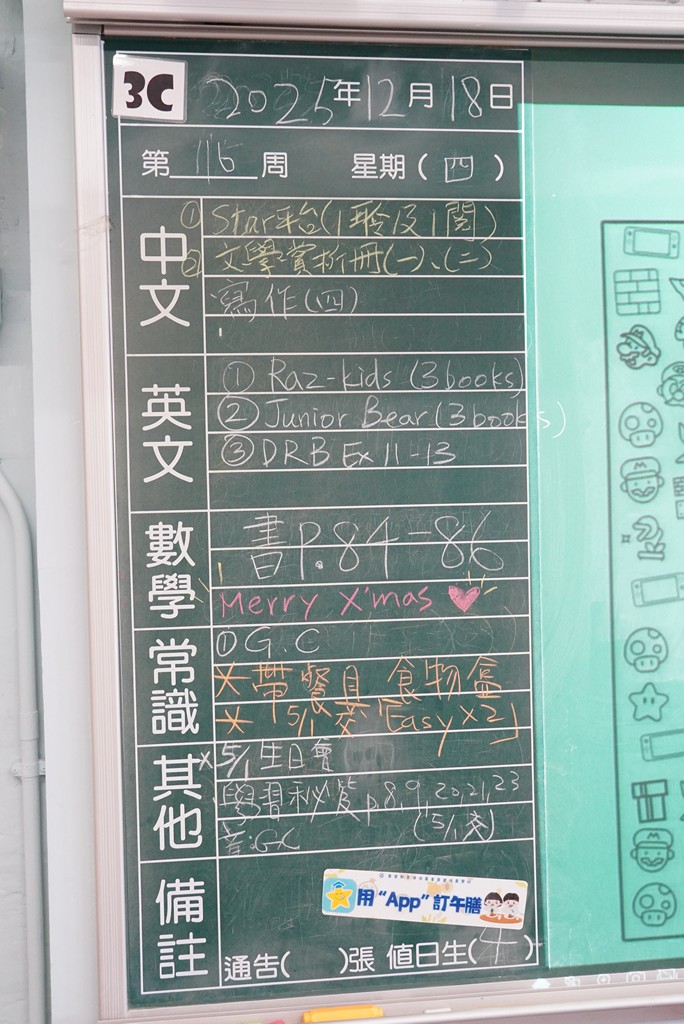 3C 2025年12月18日
第16周 星期(四)
中文
① Star平台(1聆及1閱)
② 文學賞析冊(一)、(二)
寫作(四)
英文
① Raz-kids (3 books)
② Junior Bear (3 books)
③ DRB Ex 11-13
數學
書P.84-86
Merry X'mas
常識
① G.C
*帶餐具 食物盒
* 「5/1交「Easy×2」
其他
×5/1生日會
學習秘笈p.8,9,20,21,23
音:GC (5/1交)
備註
用“App”訂午膳
通告( )張 值日生(4)